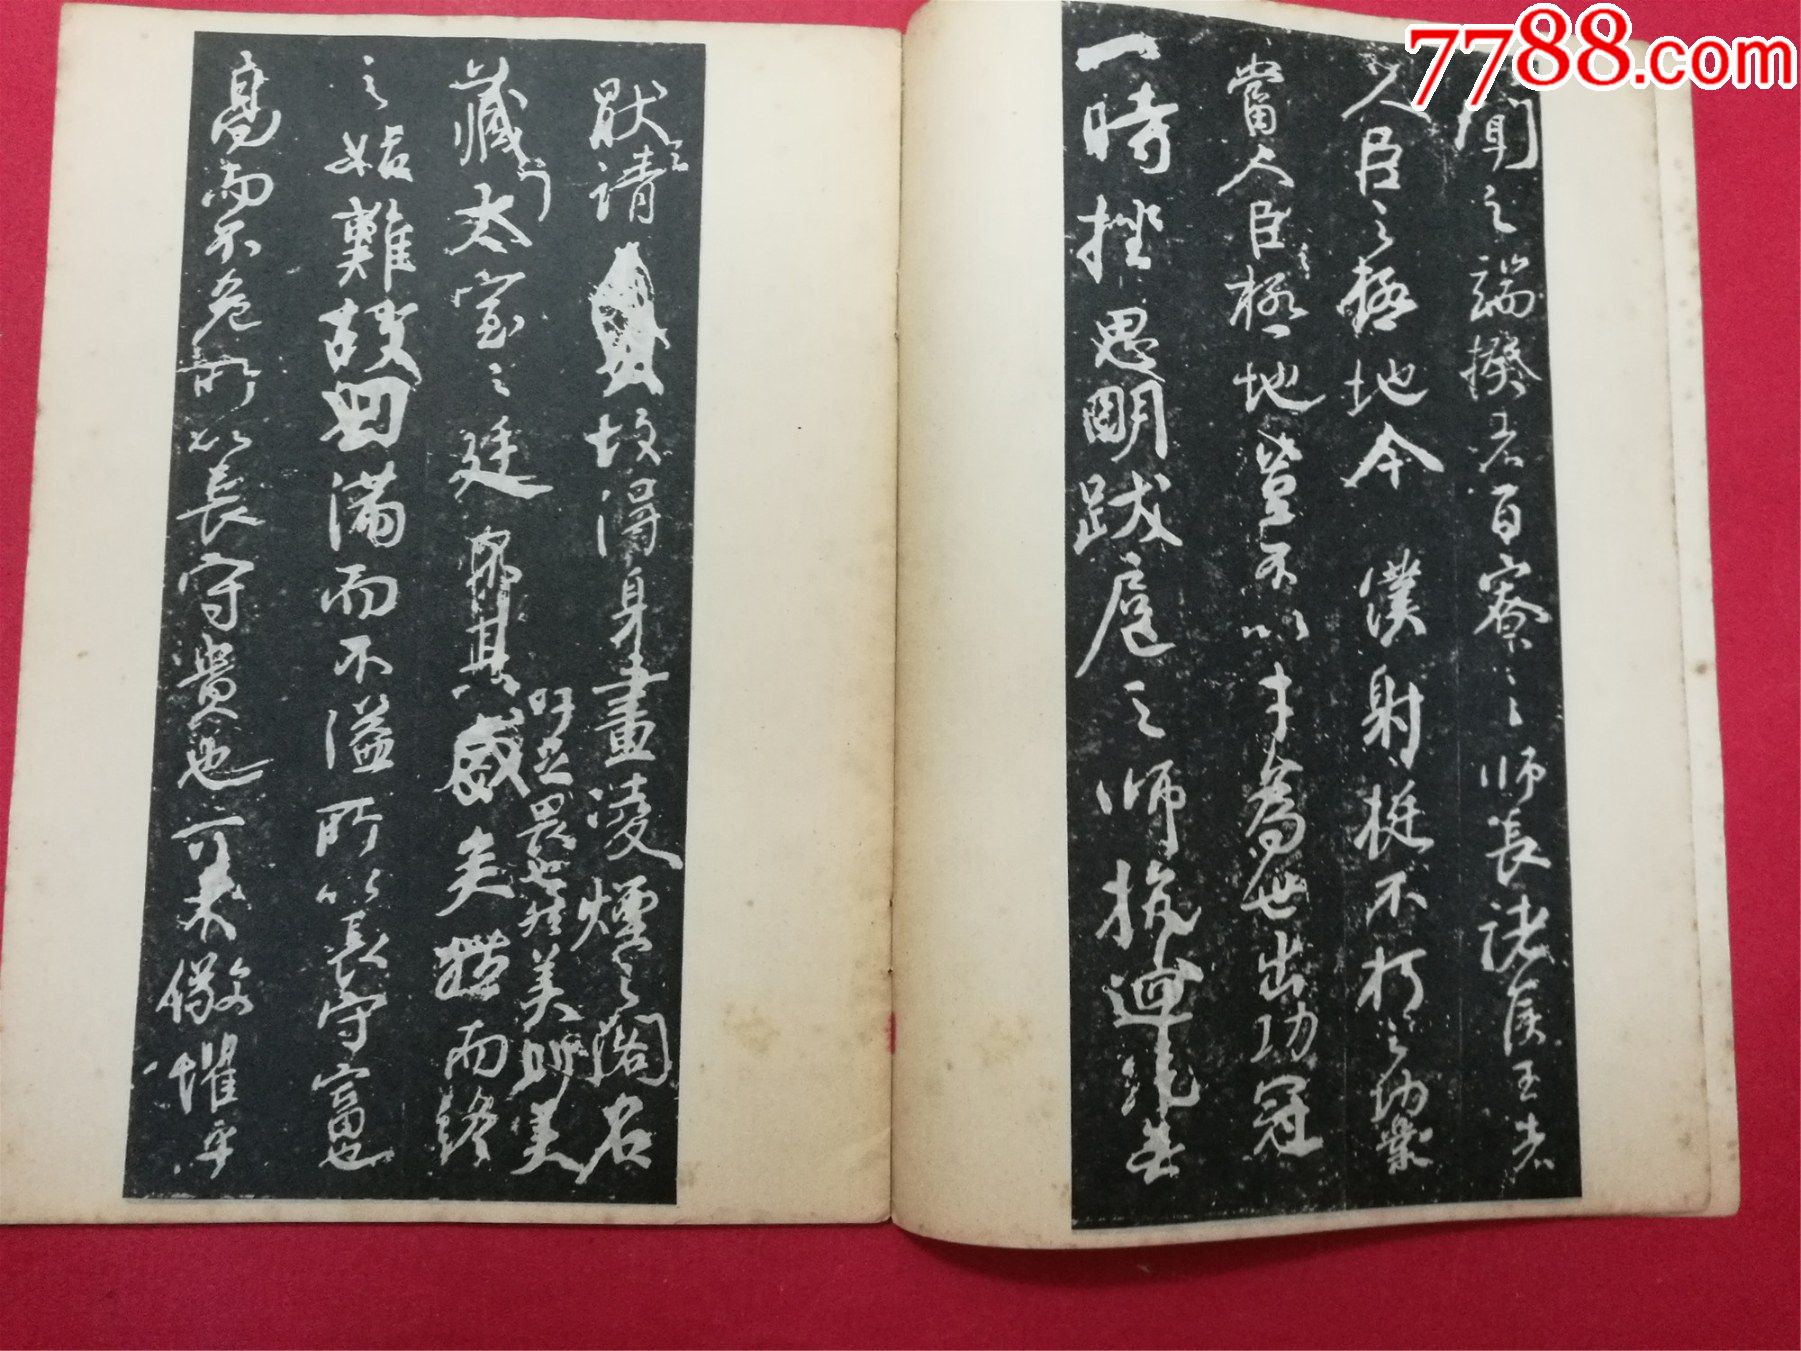 7788.com
聞之端揆者百寮之師長諸侯王者
人臣之極地今僕射挺不朽之功業
當人臣之極地豈不以才為世出功冠
一時挫思明跋扈之師抗迴紇無
猒之請故得身畫凌煙之閣名
藏太室之廷
吁足畏也然美則美
矣然而終
之始難故曰滿而不溢所以長守富也
高而不危所以長守貴也可不儆懼乎